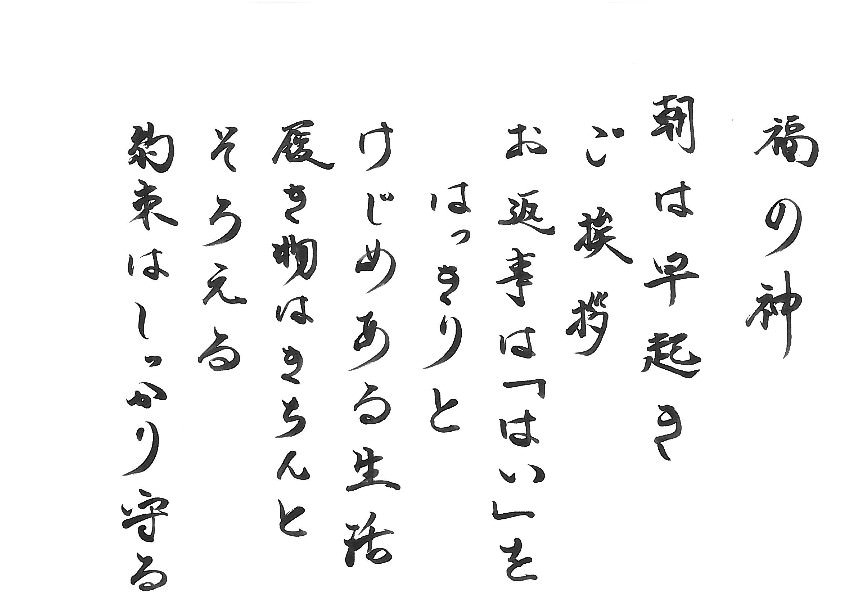 福の神
朝は早起き
ご挨拶
お返事は「はい」を
はっきりと
けじめある生活
履き物はきちんと
そろえる
約束はしっかり守る